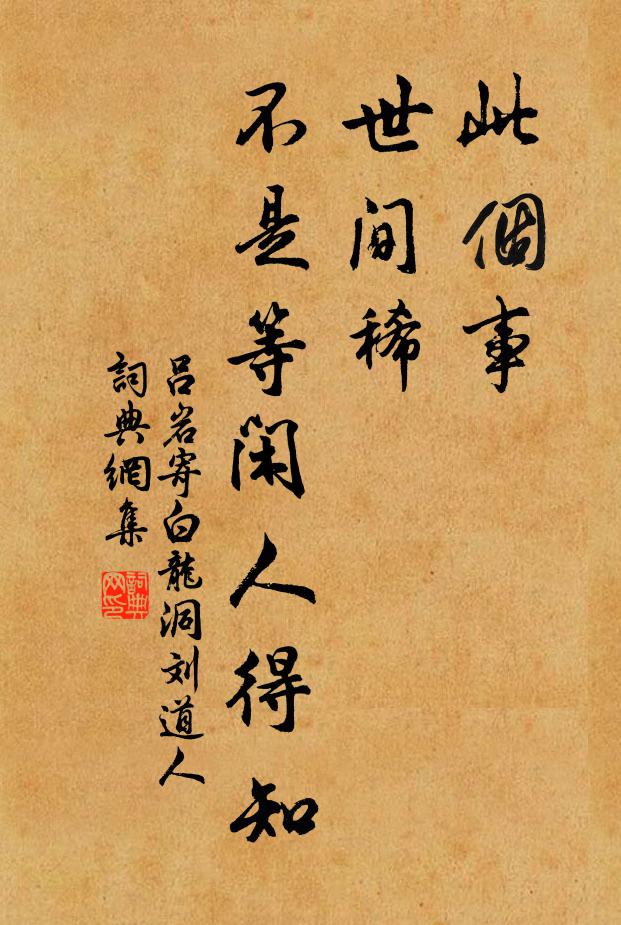 此個事
世間稀
不是等閑人得知
吕岩寄白龍洞刘道人
詞典網集
詞典网印